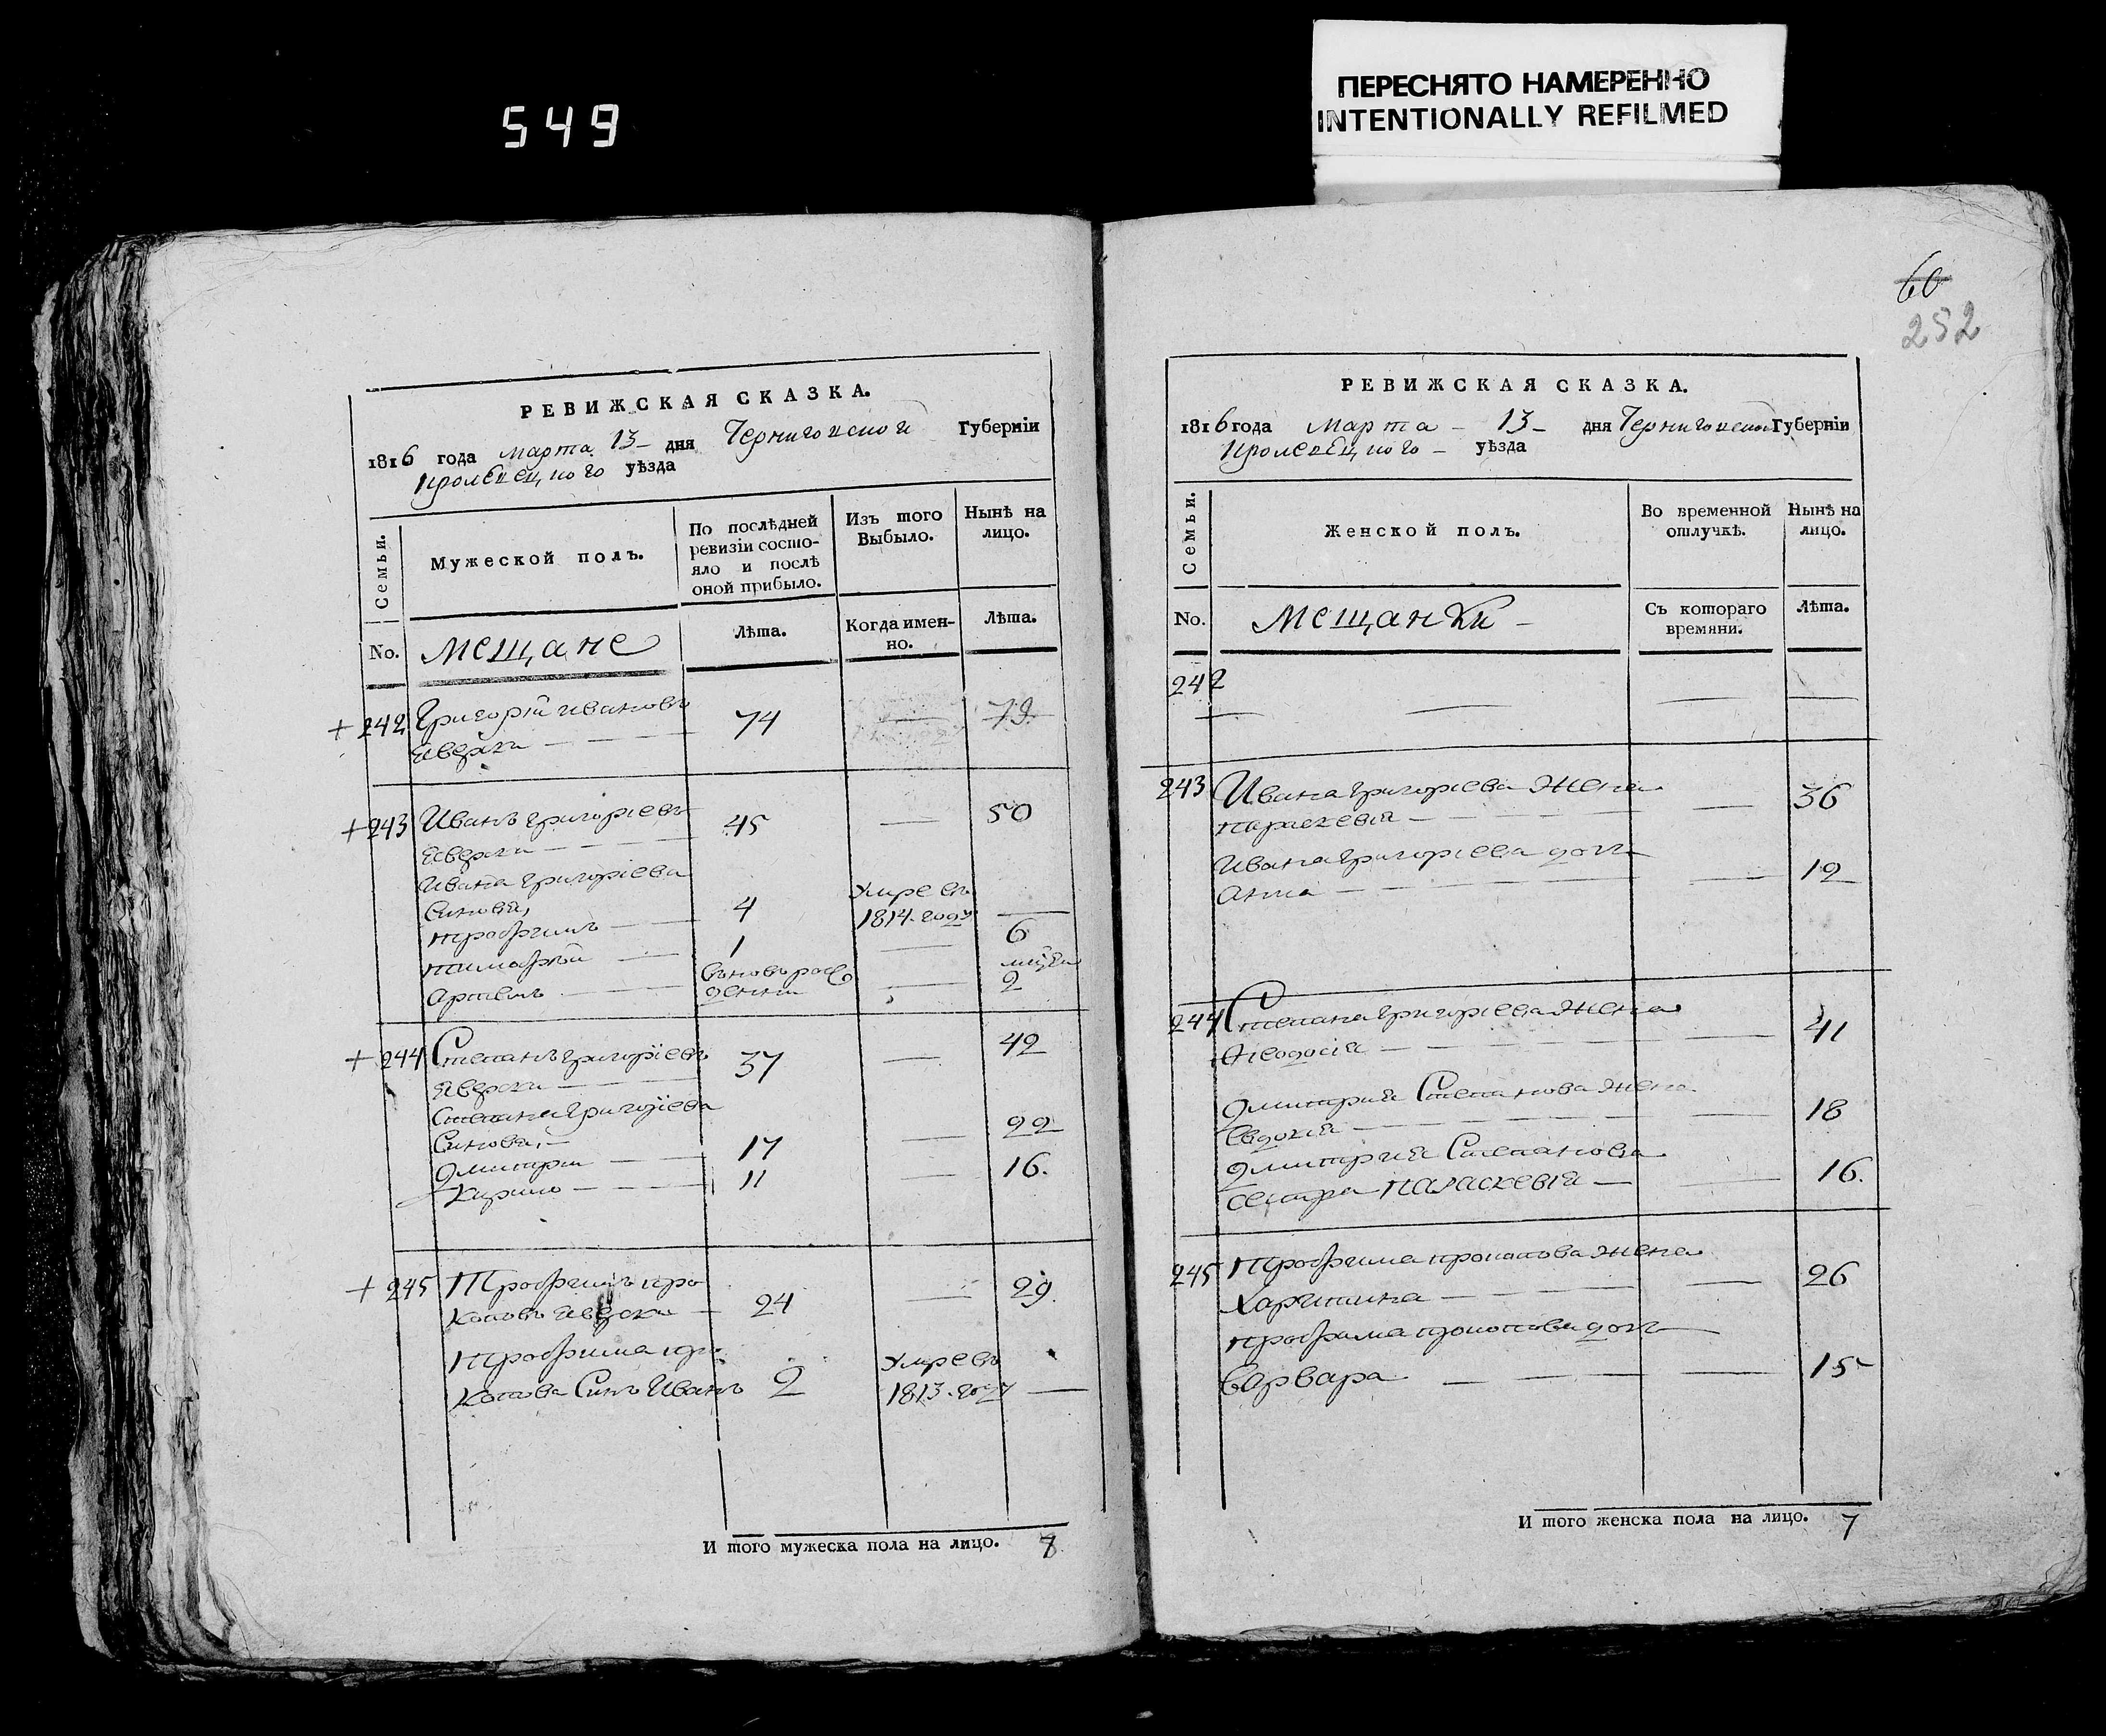 549
ПЕРЕСНЯТО НАМЕРЕННО
INTENTIONALLY REFILMED
60
252
РЕВИЖСКАЯ СКАЗКА.
1816 года марта 13 – дня Черниговской Губерніи
кролевецкого уѣзда
Семьи.
Мужеской полъ.
По послѣдней
ревизіи состо-
яло и послѣ
оной прибыло.
Изъ того
Выбыло.
Нынѣ на
лицо.
No.
мещане
Лѣта.
Когда имен-
но.
Лѣта.
+ 242 Григорій ивановъ 74 — 79.
+ 243 Иванъ григоріевъ 45 — 50
Ивана григоріева
Синовя,
трофимъ — 4 Умре въ 1814. году —
тимофѣй — 1 — 6
Артемъ — вновь рож
денни — 2
+ 244 Степанъ григоріевъ 37 — 42
Степана григоріева
Синовя, —
Дмитри — 17 — 22
Кирило — 11 — 16.
+ 245 Трофимъ про
коповъ — 24 — 29.
Трофима про
копова Синъ Иванъ 2 Умре въ 1813. году —
И того мужеска пола на лицо. 8
РЕВИЖСКАЯ СКАЗКА.
1816 года Марта – 13 – дня Черниговской Губерніи
кролевецкого – уѣзда
Семьи.
Женской полъ.
Во временной
отлучкѣ.
Нынѣ на
лицо.
No.
мещанки –
Съ котораго
времяни.
Лѣта.
242 — — —
243 Ивана григоріева жена
параскевія — — 36
Ивана григоріева дочь
Анна — — 12
244 Степана григоріева жена
Ѳеодосія — — 41
Дмитрия Степанова жена
Евдокія — — 18
Дмитрия Степанова
сестра параскевія — — 16.
245 Трофима прокопова жена
Харитина — — 26
трофима прокопова дочь
Варвара — — 15
И того женска пола на лицо. 7